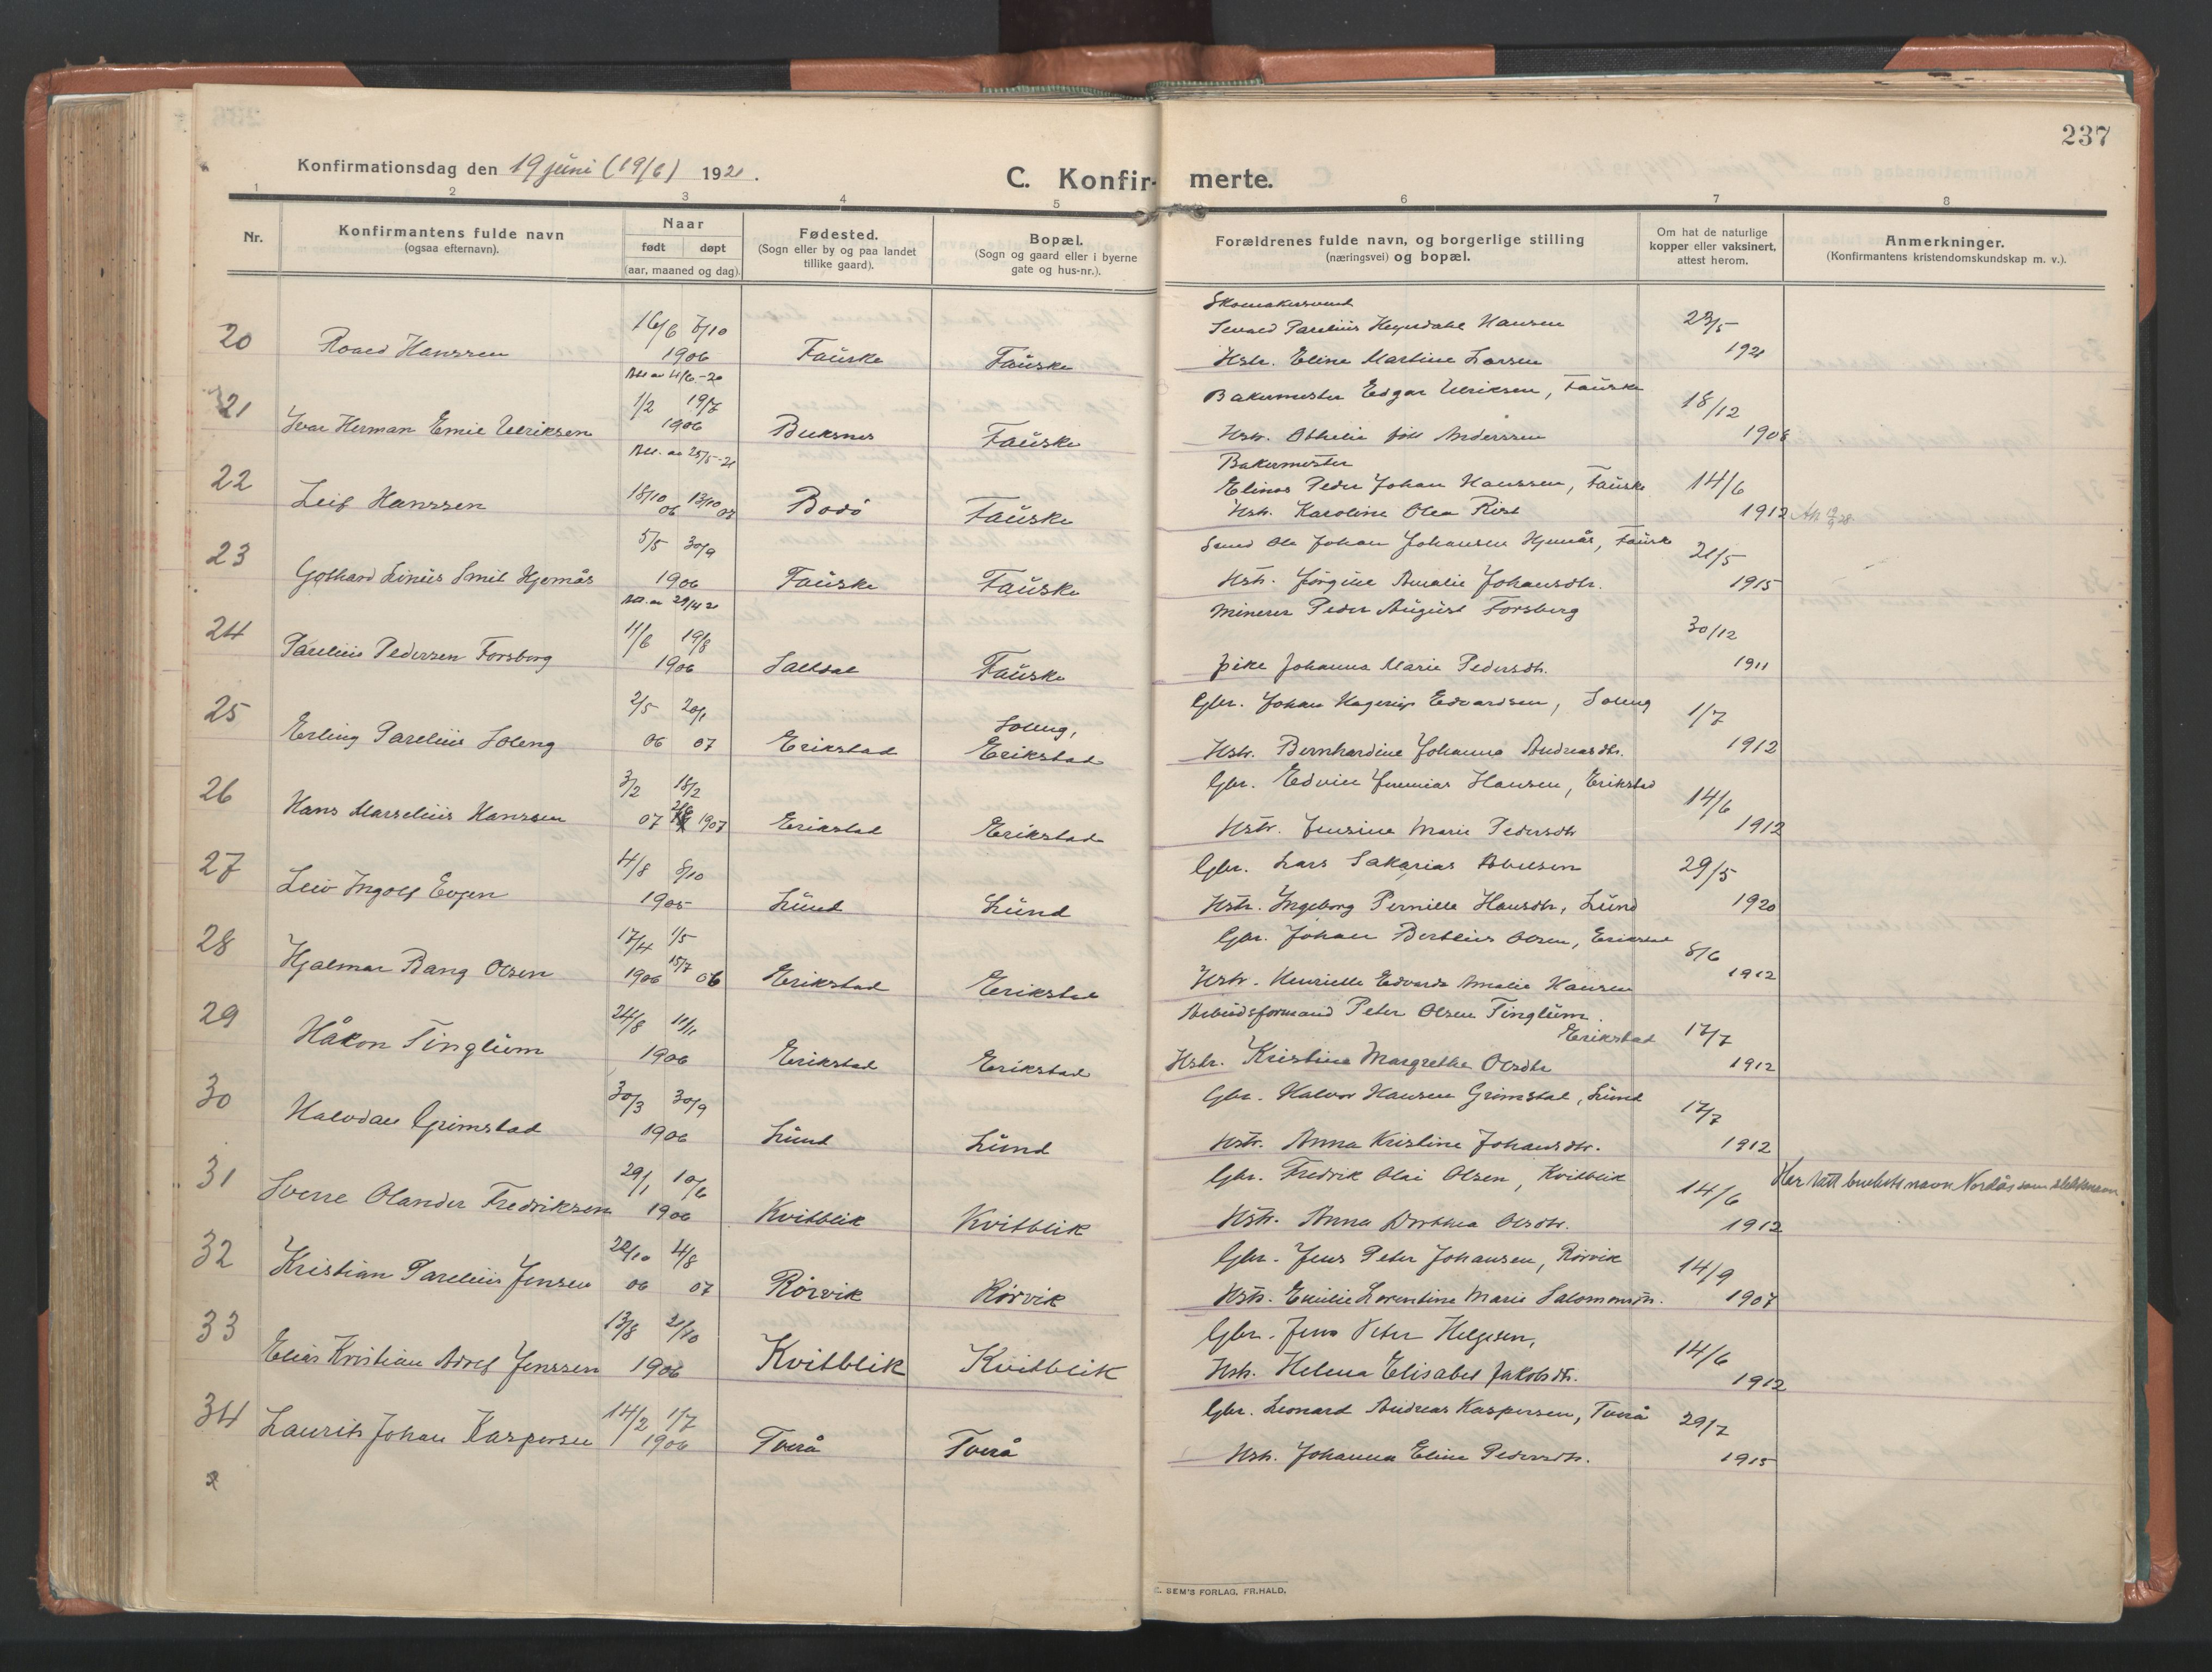 237
Konfirmationsdag den 19 juni (19/6) 1921.
C. Konfir- merte.
1 2 3 4 5 6 7 8
Nr.
Konfirmantens fulde navn
(ogsaa efternavn).
Naar
født døpt
(aar, maaned og dag).
Fødested.
(Sogn eller by og paa landet
tillike gaard).
Bopæl.
(Sogn og gaard eller i byerne
gate og hus-nr.).
Forældrenes fulde navn, og borgerlige stilling
(næringsvei) og bopæl.
Om hat de naturlige
kopper eller vaksinert,
attest herom.
Anmerkninger.
(Konfirmantens kristendomskundskap m. v.).
Skomakersvend
20 Roald Hanssen 16/6 7/10 Fauske Fauske Parelius Heyerdahl Hansen 23/5
1906 Hstr. Eline Martine Larsen 1921
21 Ivar Herman Emil Ulriksen 1/2 19/7 Buksnes Fauske Bakermester Edgar Ulriksen, Fauske 18/12
1906 Hstr. Othelie Andersen 1908
Bakermester
22 Leif Hanssen 18/10 06 13/10 07 Bodø Fauske Peder Johan Hanssen, Fauske 14/6
Hstr. Karoline Olea Rist 1912
23 Gothard Linius Smit Hjemås 5/5 30/9 Fauske Fauske Ole Johan Johansen Hjemås, Fauske 21/5
1906 Hstr. Jørgine Amalie Johansdtr. 1915
24 Parelius Pedersen Forsberg 11/6 19/8 Saltdal Fauske Minerer Peder August Forsberg 30/12
1906 pike Johanna Marie Pedersdtr. 1911
25 Erling Parelius Soleng 2/5 20/1 Erikstad Soleng, Erikstad Gbr. Johan Hagerup Edvardsen, Soleng 1/7
06 07 Hstr. Bernhardine Johanna Andreasdtr. 1912
26 Hans Marselius Hanssen 3/2 18/2 Erikstad Erikstad Gbr. Edvin Jeremias Hansen, Erikstad 14/6
07 1907 Hstr. Jensine Marie Pedersdtr 1912
27 Leiv Ingolf Evjen 4/8 8/10 Lund Lund Gbr. Lars Sakarias Abelsen 29/5
1905 Hstr. Ingeborg Pernille Hansdtr, Lund 1920
28 Hjalmar Bang Olsen 17/4 1/5 Erikstad Erikstad Gbr. Johan Bertheus Olsen, Erikstad 8/6
1906 15/7 06 Hstr. Henrielle Edvarda Amalie Hansen 1912
29 Håkon Tinglum 24/8 11/11 Erikstad Erikstad Arbeidsformand Peter Olsen Tinglum. Erikstad 17/7
1906 Hstr. Kristine Margrethe Olsdtr 1912
30 Halvdan Grimstad 30/3 30/9 Lund Lund Gbr. Halvor Hansen Grimstad, Lund 17/7
1906 Hstr. Anna Kristine Johansdtr. 1912
31 Sverre Olander Fredriksen 29/1 10/6 Kvitblik Kvitblik Gbr. Fredrik Olai Olsen, Kvitblik 14/6 Har tatt brukets navn Nordås som slektsnavn.
1906 Hstr. Anna Dorthea Olsdtr. 1912
32 Kristian Parelius Jensen 20/10 4/8 Rörvik Rörvik Gbr. Jens Peter Johansen, Rörvik 14/9
06 07 Hstr. Emilie Lorentine Marie Salomonsdtr. 1907
33 Elias Kristian Adolf Jenssen 13/8 21/10 Kvitblik Kvitblik Gbr. Jens Peter Helgesen, 14/6
1906 Hstr. Helena Elisabet Jakobsdtr. 1912
34 Laurits Johan Kaspersen 14/2 1/7 Tverå Tverå Gbr. Leonard Andreas Kaspersen, Tverå 29/7
1906 Hstr. Johanna Eline Pedersdtr. 1915
SEM'S FORLAG, FR.HALD.